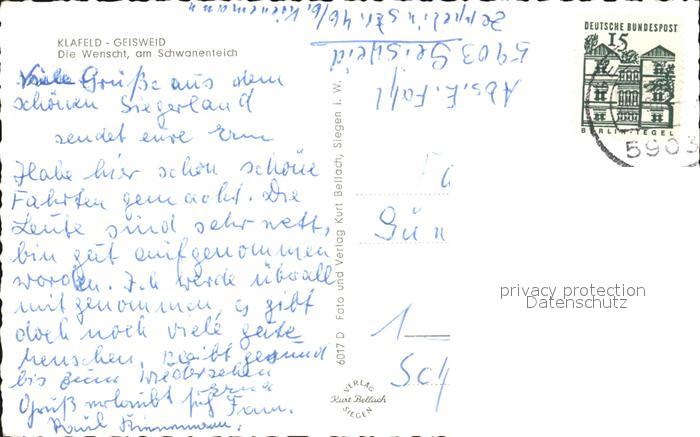 KLAFELD - GEISWEID
Die Wenscht, am Schwanenteich
Viele Grüße aus dem
schönen Siegerland
sendet eure Erna
Habe hier schon schöne
Fahrten gemacht. Die
Leute sind sehr nett,
bin gut aufgenommen
worden. Ich werde überall
mitgenommen, es gibt
doch noch viele gute
Menschen, bleibt gesund
bis zum Wiedersehen
Erna
Gruß erlaubt sich Fam.
Paul
Abs. E. Fahl
5903 Geisweid
Zeppelinstr. 46 b/
6017 D Foto und Verlag Kurt Bellach, Siegen i. W.
VERLAG
Kurt Bellach
SIEGEN
DEUTSCHE BUNDESPOST
15
BERLIN-TEGEL
5903
Fa
Gün
1
Sch
privacy protection
Datenschutz